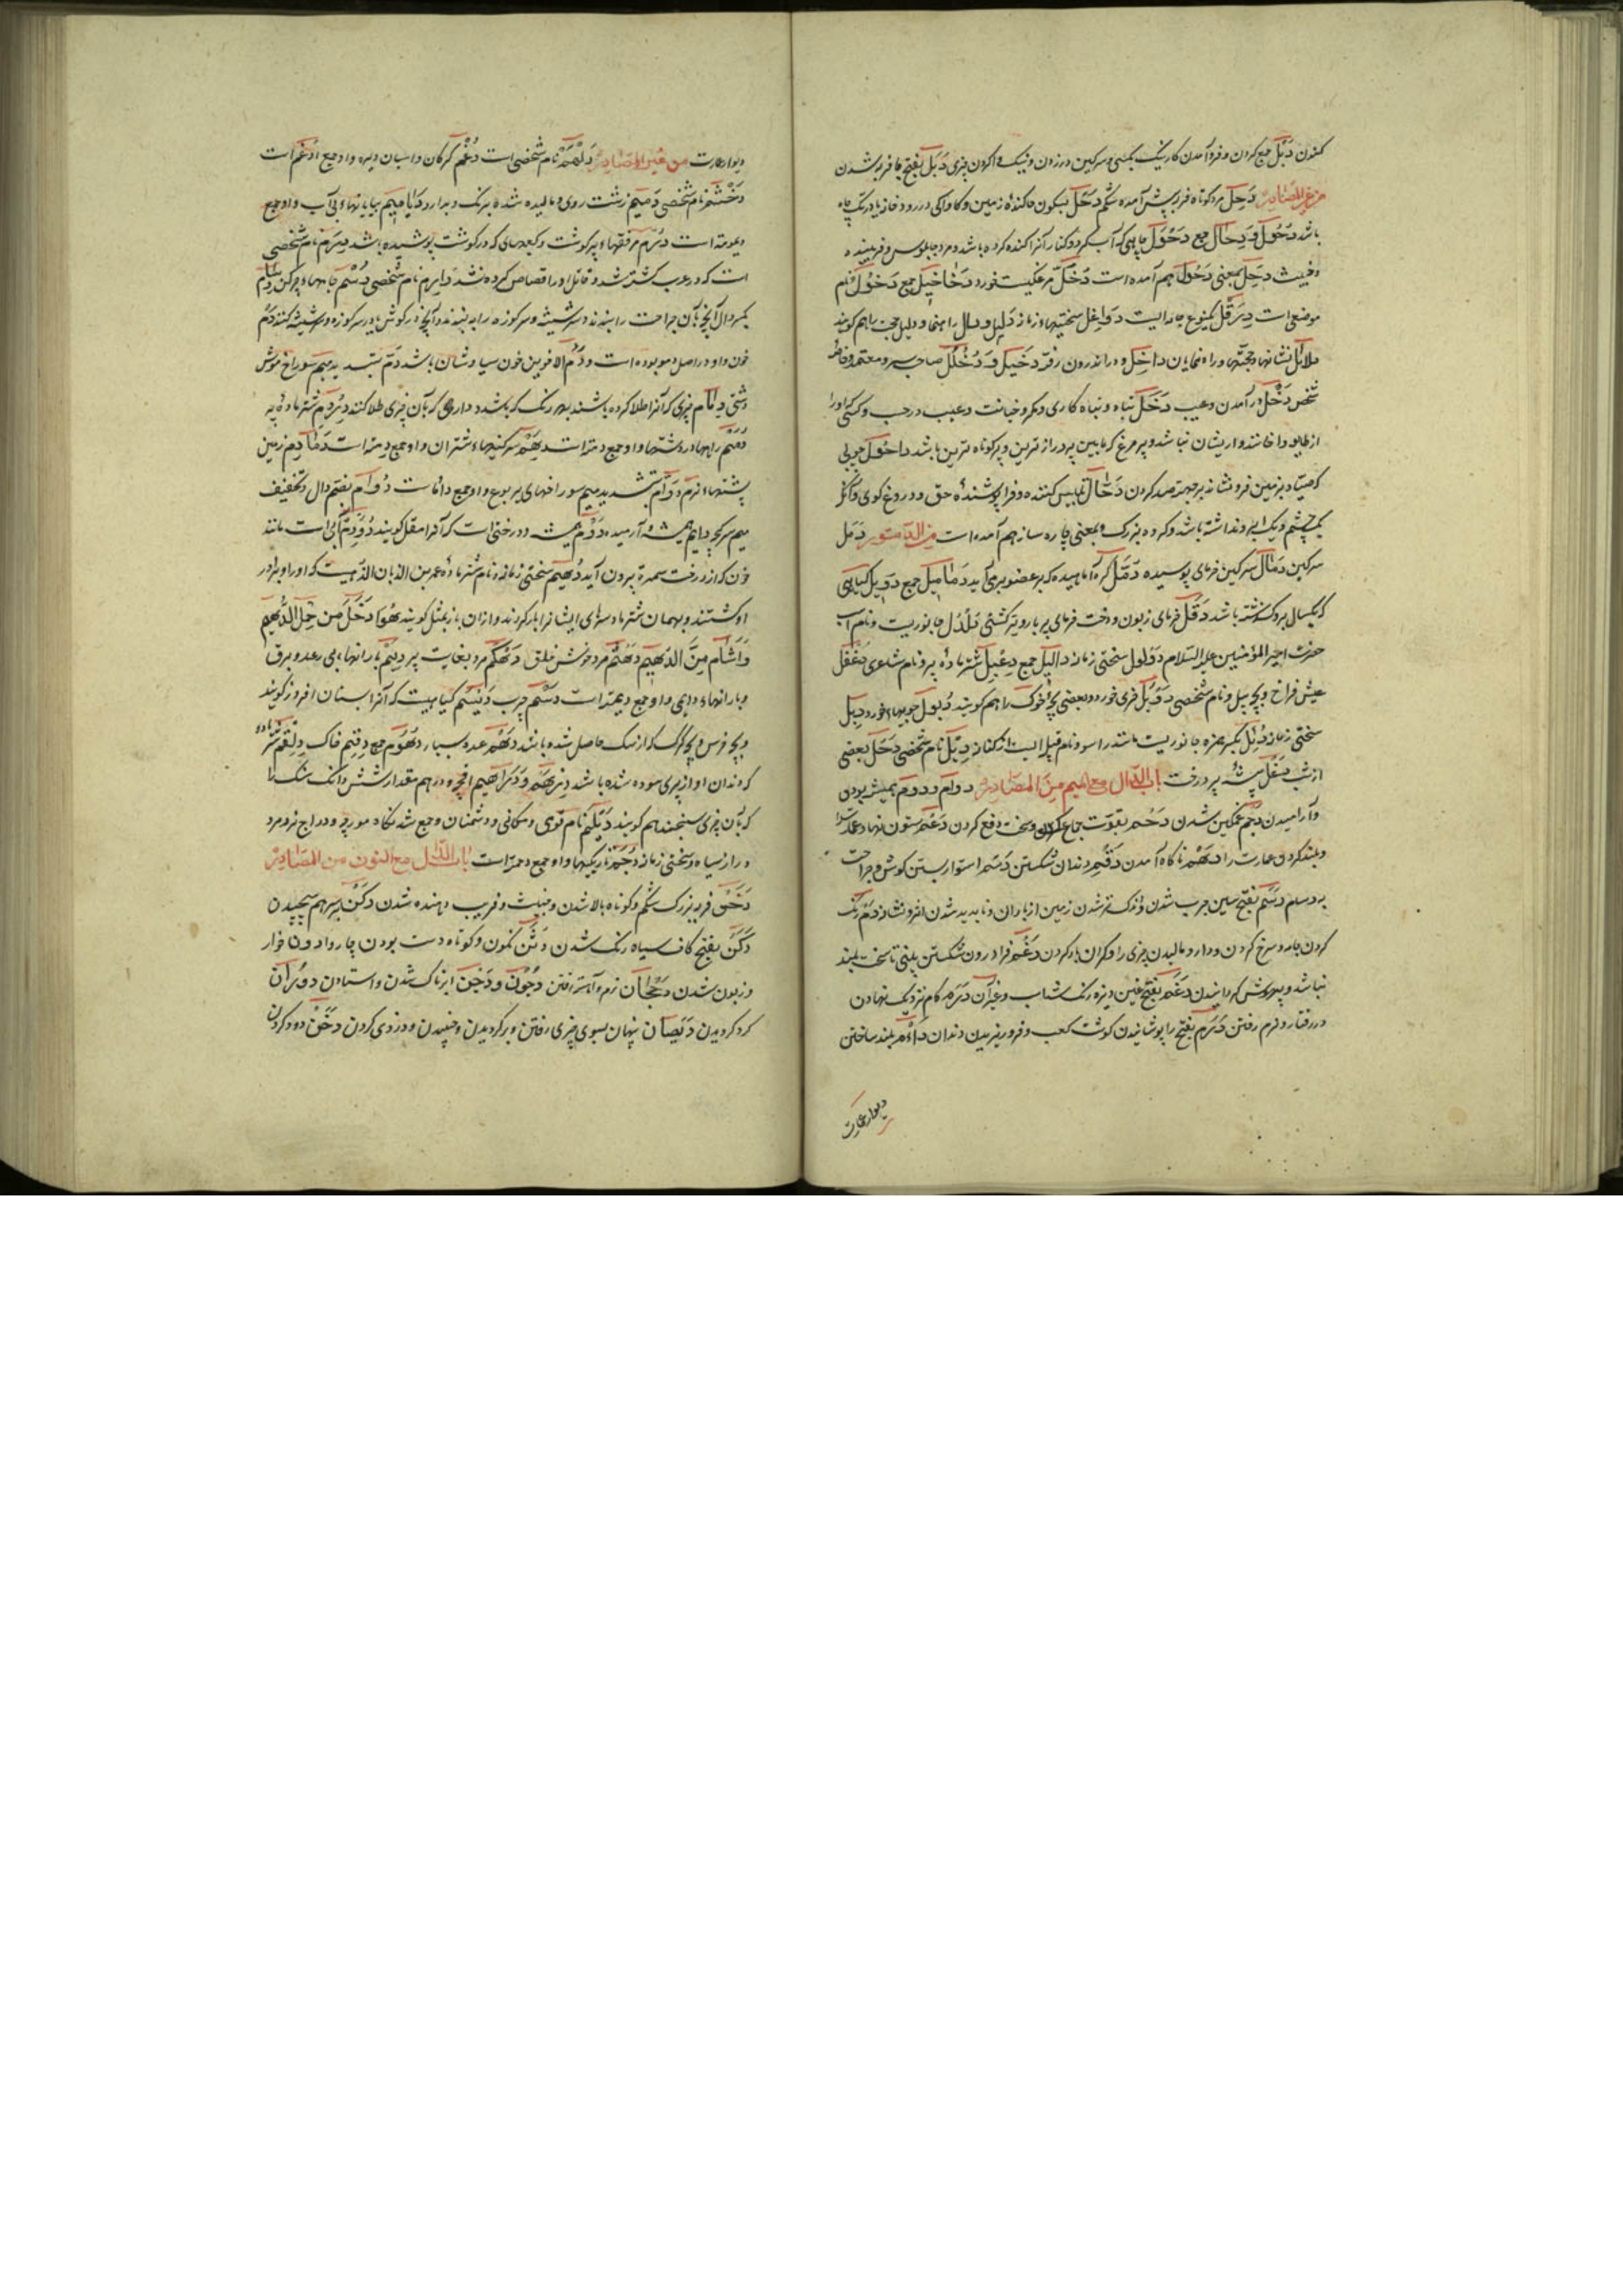 کنون دَبْل جمع کردن و فرو آمدن کار نیک بکسی و سرکین در زدن و نیک فرا کردن چیزی دَبَل بفتح با فربه شدن
من غیر المصادر دَحِل مرد کوتاه فربه پیش آمده شکم دَحْل بسکون حا کندهٔ زمین و کاواکی در رود خانه یا در تک چاه
باشد دُحُول و دِحَال جمع دَحُول چاهی که آب کرد و کنار آنرا کنده کرده باشد و مرد چابلوس و فریبنده
و خبیث دَحِل بمعنی دَحُول هم آمده است دُخَّل مرغکیست خورد دَخَاخِیل جمع دَخُول نام
موضعی است دِرَقْل یکنوع جامه ایست دَوَاغِل سختیها و زمانه دَلِیل و دال راهنما و دلیل حجت را هم کویند
دلائل نشانها و حجتها و راه نمایان داخل و در اندرون رفته دَخِیل و دُخْلُل صاحب سر و معتمد و خاصه
شخص دَخْل در آمدن و عیب دَخَل تباه و تباه کاری و مکر و خیانت و عیب در حسب و کسی که او را
از طایفه داخانند و از یشان نباشد و پر مرغ که مابین پر دراز ترین و پر کوتاه ترین باشد داحُول چوبی
که صیاد بزمین فرو نشاند بر جهت صید کردن دَجَّال تلبیس کننده و فرا پوشندهٔ حق و دروغ کوی و آنکه
یک چشم و یک ابرو نداشته باشد و کروه بزرک و بمعنی چاره ساز هم آمده است من الدستور دَمَل
سرکین دَمَال سرکین خرمای پوسیده دُمَّل کره آماسیده که بر عضو برمی آید دَمَامِیل جمع دَوِیل کیاهی
که یکسال برو کذشته باشد دَقَل خرمای زبون و درخت خرمای پر بار و تیر کشتی دُلْدُل جانوریست و نام اسب
حضرت امیر المؤمنین علیه السلام دُؤلول سختی زمانه دَآلِیل جمع دِعْبِل شتر مادهٔ پیر و نام شاعری دَغْفَل
عیش فراخ و بچه پیل و نام شخصی دَوْبَل خری خورد و بعضی بچهٔ خوک را هم کویند دُبُول جویهاء خورد دِبْل
سختی زمانه دُئِل بکسر همزه جانوریست مانند راسو و نام قبیله ایست از کنانه دِئْل نام شخصی دَخَل بعضی
از شب دَغَل بیشهٔ پر درخت باب الدّال مع المیم مِنَ المصَادِر دوام و دوم همیشه بودن
و آرامیدن دَجْم غمکین شدن دَحْم بقوت جماع کردن و سخت دفع کردن دَعْم ستون نهاد و عمارت را
و بلند کردن عمارت را دَهْم ناکاه آمدن دَقْم دندان شکستن دَسْم استوار بستن کوش و جراحت
دَسَم بفتح سین چرب شدن و اندک تر شدن زمین از باران و ناپدید شدن اثر و نشانه دَمّ رنک
کردن جامه و سرخ کردن و دارو مالیدن چیزی را و کران بار کردن دَغْم فرا درون شکستن بینی تا سخت بلند
نباشد و بیهوش کردانیدن دَغَم بفتح غین و تیره رنک شدن اسب و غیر آن دَرْم کام نزدیک نهادن
در رفتار و نرم رفتن دَرَم بفتح را پوشانیدن کوشت کعب و فرو ریزیدن دندان دَأْم بلند ساختن
دیوار عمارت
دیوار عمارت من غیر المصَادِر دَلْهَم نام شخصی است دُغْم کرکان و اسبان دیزه و او جمع ادغم است
دَخْشَم نام شخصی دَمِیم زشت روی و مالیده شده برنک و بدارو دَیَامِیم بیابانهاء بی آب و او جمع
دیمومة است دُرْم مرفقهاء پر کوشت و کعبهای که در کوشت پوشیده باشد دَرِم نام شخصی
است که در عرب کشته شد و قاتل او را قصاص کرده نشد دَارِم نام شخصی دُسْم جامهاء چرکن دِسَام
بکسر دال آنچه بآن جراحت را ببندند و سر شیشه و سر کوزه را بدان ببندند و آنچه در کوش یا در سر کوزه و سر شیشه کنند دَم
خون و او در اصل دمو بوده است و دَمُ الاخوین خون سیاوشان باشد دَمّ بتشدید میم سوراخ موش
دشتی دِمَام چیزی که آنرا طلا کرده باشند بهر رنک که باشد و داروی که بآن چیزی طلا کنند دِرْدِم شتر مادهٔ پیر
بیم سرکچه دایم همیشه و آرمیده دَوْم همیشه و درختی است که آنرا مقل کویند دُوَدِم آبی است مانند
خون که از درخت سمره بیرون آید دُهَیم سختی زمانه و نام شتر مادهٔ عمرو بن الذبان الذهلیست که او را و برادر
او کشتند و بهمان شتر ماده سرهای ایشانرا بار کردند و از آن باز بمثل کویند هُوَ اَدْخَلُ مِن حِمْلِ الدُّهَیم
وَ اَشْأَم مِنَ الدُّهَیم دَهْثَم مرد خوش خلق دَهْکَم مرد بغایت پیر دِیَم بارانهاء بی رعد و برق
و بارانهاء دایمی و او جمع دیمة است دَسَم چرب دَیْسَم کیاهیست که آنرا بستان افروز کویند
و بچه خرس و بچه کرک که از سک حاصل شده باشد دَهْم عدد بسیار دُهُوم جمع دِقْعِم خاک دِلْقِم شتر ماده
که دندان او از پیری سوده شده باشد دِرْهَم و دَرَاهِیم اقچه و درهم مقدار شش دانک سنک را
که بآن چیزی سنجند هم کویند دَیْلَم نام قومی و مکانی و دشمنان و جمع شدنکاه مورچه و دراج نر و مرد
دراز سیاه و سختی زمانه دُجَم تاریکیها و او جمع دجمة است باب الدّال مع النون من المصَادِر
دَحَن فربه بزرک شکم و کوتاه بالا شدن و خباثت و فریب دهنده شدن دَکْن بر سر هم پیچیدن
دَکَن بفتح کاف سیاه رنک شدن دَنَن نکون و کوتاه دست بودن چاروا دون خوار
و زبون شدن دَجَجان نرم و آهسته رفتن دُجُون و دَجْن ابرناک شدن و استادن دَوَرَان
کرد کردیدن دَیَصَان پنهان بسوی چیزی رفتن و بر کردیدن و جنبیدن و دزدی کردن دَخَن دود کردن